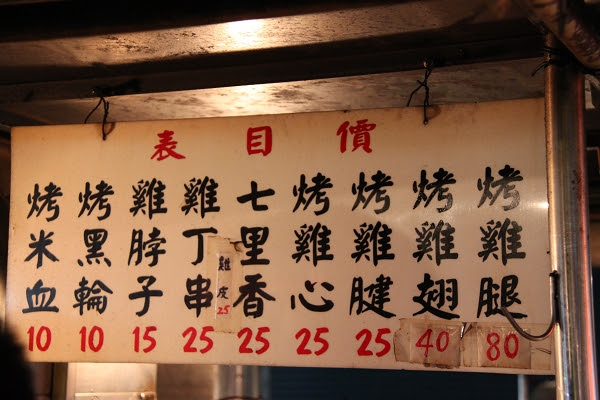 價目表
烤雞腿 80
烤雞翅 40
烤雞腱 25
烤雞心 25
七里香 25
雞皮 25
雞丁串 25
雞脖子 15
烤黑輪 10
烤米血 10